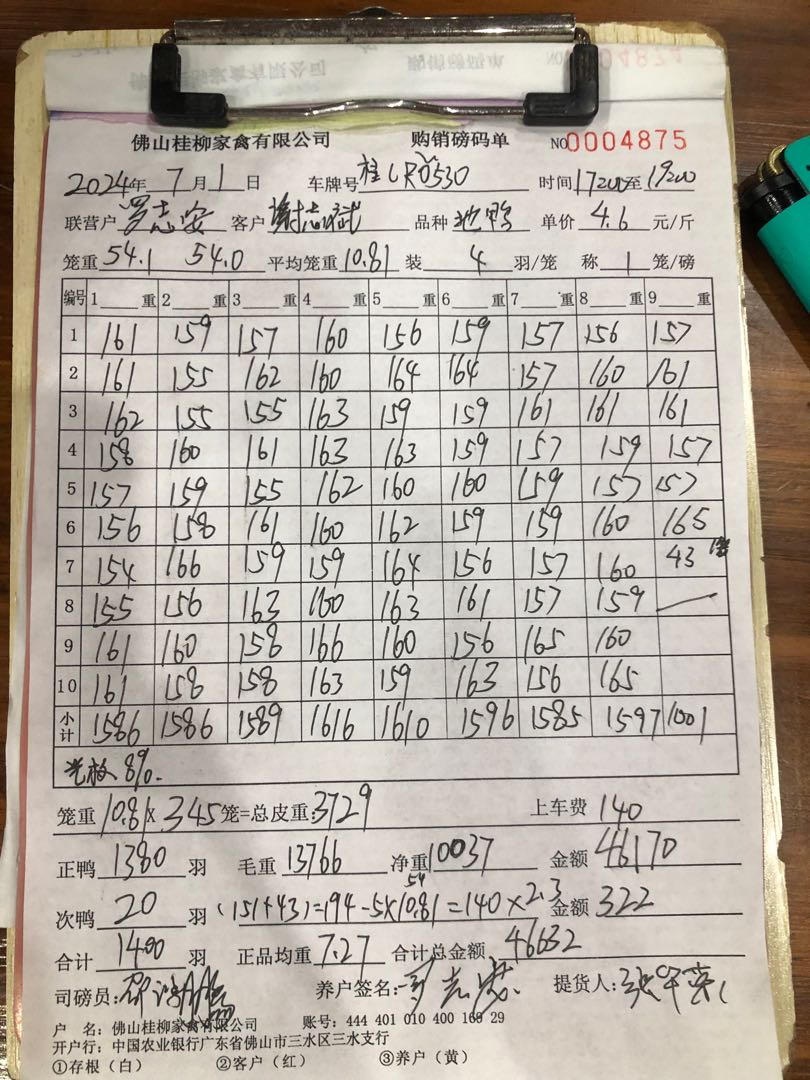 佛山桂柳家禽有限公司 购销磅码单 NO 0004875
2024年 7月1日 车牌号 桂LR0530 时间 17:00至19:00
联营户 罗志安 客户 谢志斌 品种 北鸭 单价 4.6 元/斤
笼重 54.1 54.0 平均笼重 10.81 装 4 羽/笼 称 1 笼/磅
编号 1 重 2 重 3 重 4 重 5 重 6 重 7 重 8 重 9 重
1 161 159 157 160 156 159 157 156 157
2 161 155 162 160 164 164 157 160 161
3 162 155 155 163 159 159 161 161 161
4 158 160 161 163 163 159 157 159 157
5 157 159 155 162 160 160 159 157 157
6 156 158 161 160 162 159 159 160 165
7 154 166 159 159 164 156 157 160 43
8 155 156 163 160 163 161 157 159
9 161 160 158 166 160 156 165 160
10 161 158 158 163 159 163 156 165
小计 1586 1586 1589 1616 1610 1596 1585 1597 1001
8%.
笼重 10.81 X 345 笼=总皮重:3729 上车费 140
正鸭 1380 羽 毛重 13766 净重 10037 金额 46170
54
次鸭 20 羽 (151+43)=194-5×10.81=140×2.3 金额 322
合计 1400 羽 正品均重 7.27 合计总金额 46632
司磅员: 养户签名: 罗志安 提货人:
户 名: 佛山桂柳家禽有限公司 账号: 444 401 010 400 169 29
开户行: 中国农业银行广东省佛山市三水区三水支行
①存根(白) ②客户(红) ③养户(黄)